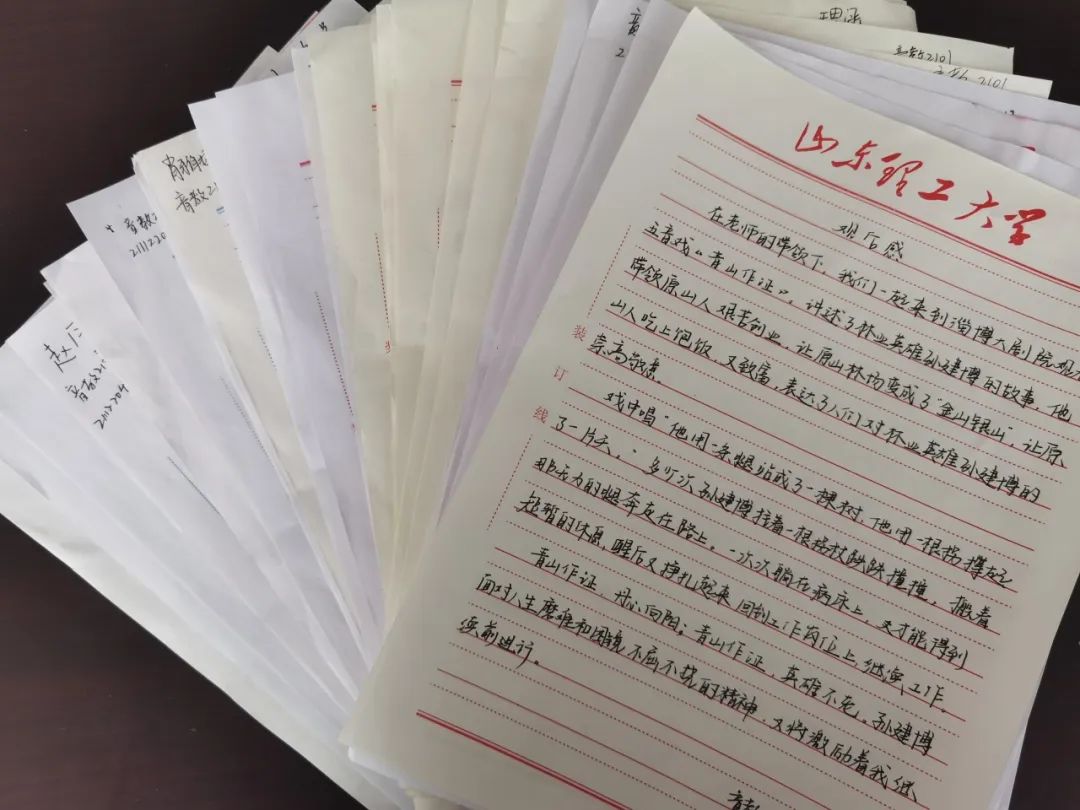 山东理工大学
观后感
在老师的带领下,我们一起来到淄博大剧院观看
五音戏《青山作证》。讲述了林业英雄孙建博的故事,他
带领原山人艰苦创业,让原山林场变成了"金山银山",让原
山人吃上饱饭,又致富,表达了人们对林业英雄孙建博的
崇高敬意。
戏中唱"他用一条腿站成了一棵树,他用一根拐撑起
了一片天。"多少次孙建博拄着一根拐杖跌跌撞撞,搬着
那无力的腿奔走在路上。一次次躺在病床上,才能得到
短暂的休息,醒后又挣扎起来回到工作岗位上,继续工作。
青山作证,丹心向阳;青山作证,英雄不死。孙建博
面对人生磨难和困境不屈不挠的精神,又将激励着我继
续前进行。
装
订
线
音教2101
2101
音教
211220
音教21
赵
音教21
2112204